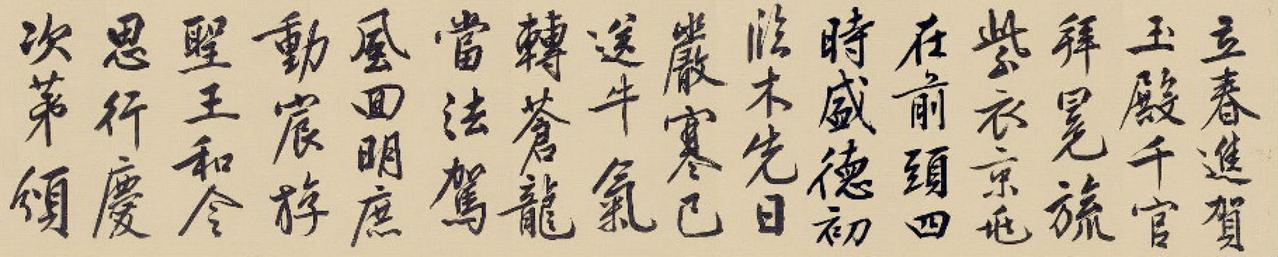 立春進賀
玉殿千官
拜冕旒
紫衣京兆
在前頭四
時盛德初
臨木先日
嚴寒已
送牛氣
轉蒼龍
當法駕
風回明庶
動宸游
聖王和令
恩行慶
次第頒